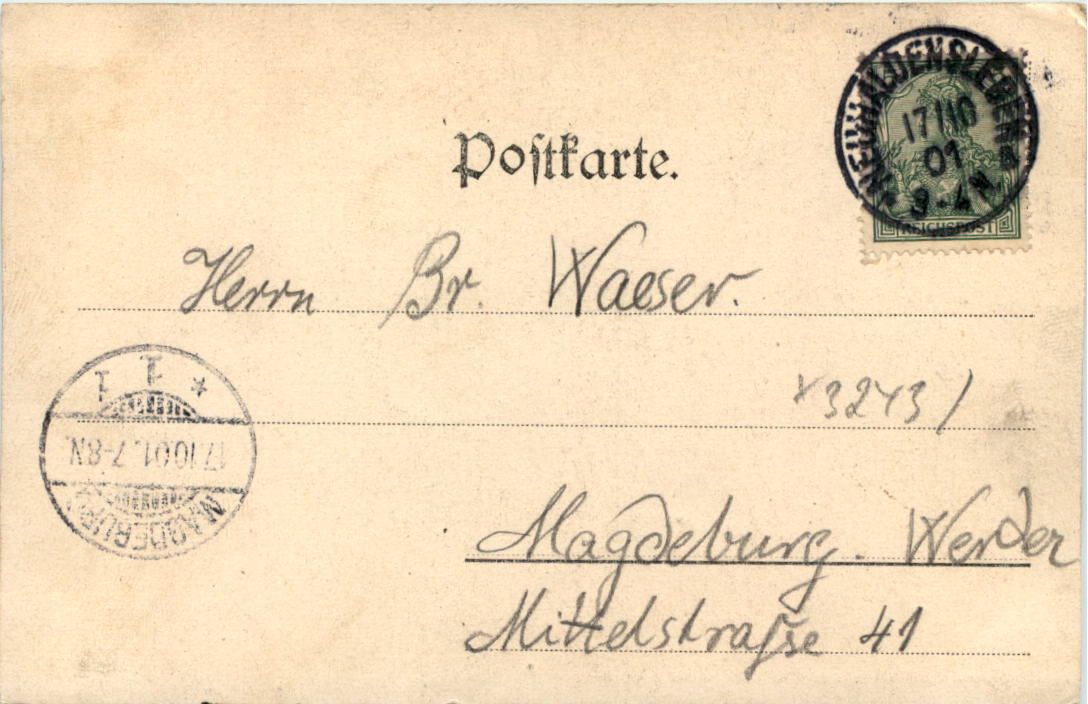 NEUHALDENSLEBEN
17/10
01
3-4N
REICHSPOST
Postkarte.
Herrn Br. Waeser.
3243/
1 1 *
17.10.01.7-8N.
MAGDEBURG
Magdeburg. Werder
Mittelstraſse 41